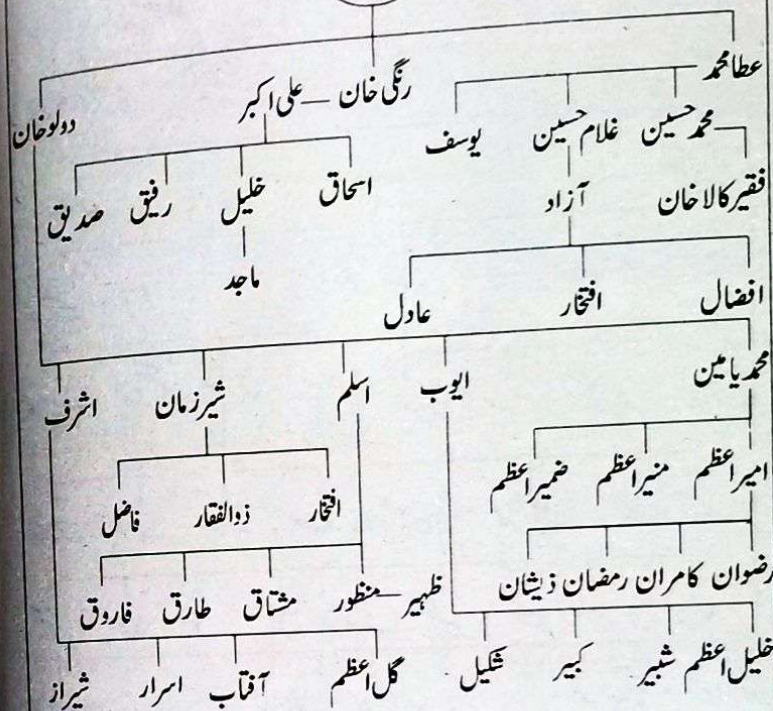 عطا محمد
رنگی خان — علی اکبر دولو خان
محمد حسین غلام حسین یوسف
فقیر کالا خان آزاد اسحاق خلیل رفیق صدیق
ماجد
افضال افتخار عادل
محمد یامین ایوب اسلم شیر زمان اشرف
امیر اعظم منیر اعظم ضمیر اعظم
افتخار ذوالفقار فاضل
رضوان کامران رمضان ذیشان
ظہیر — منظور مشتاق طارق فاروق
خلیل اعظم شبیر کبیر شکیل
گل اعظم آفتاب اسرار شیراز